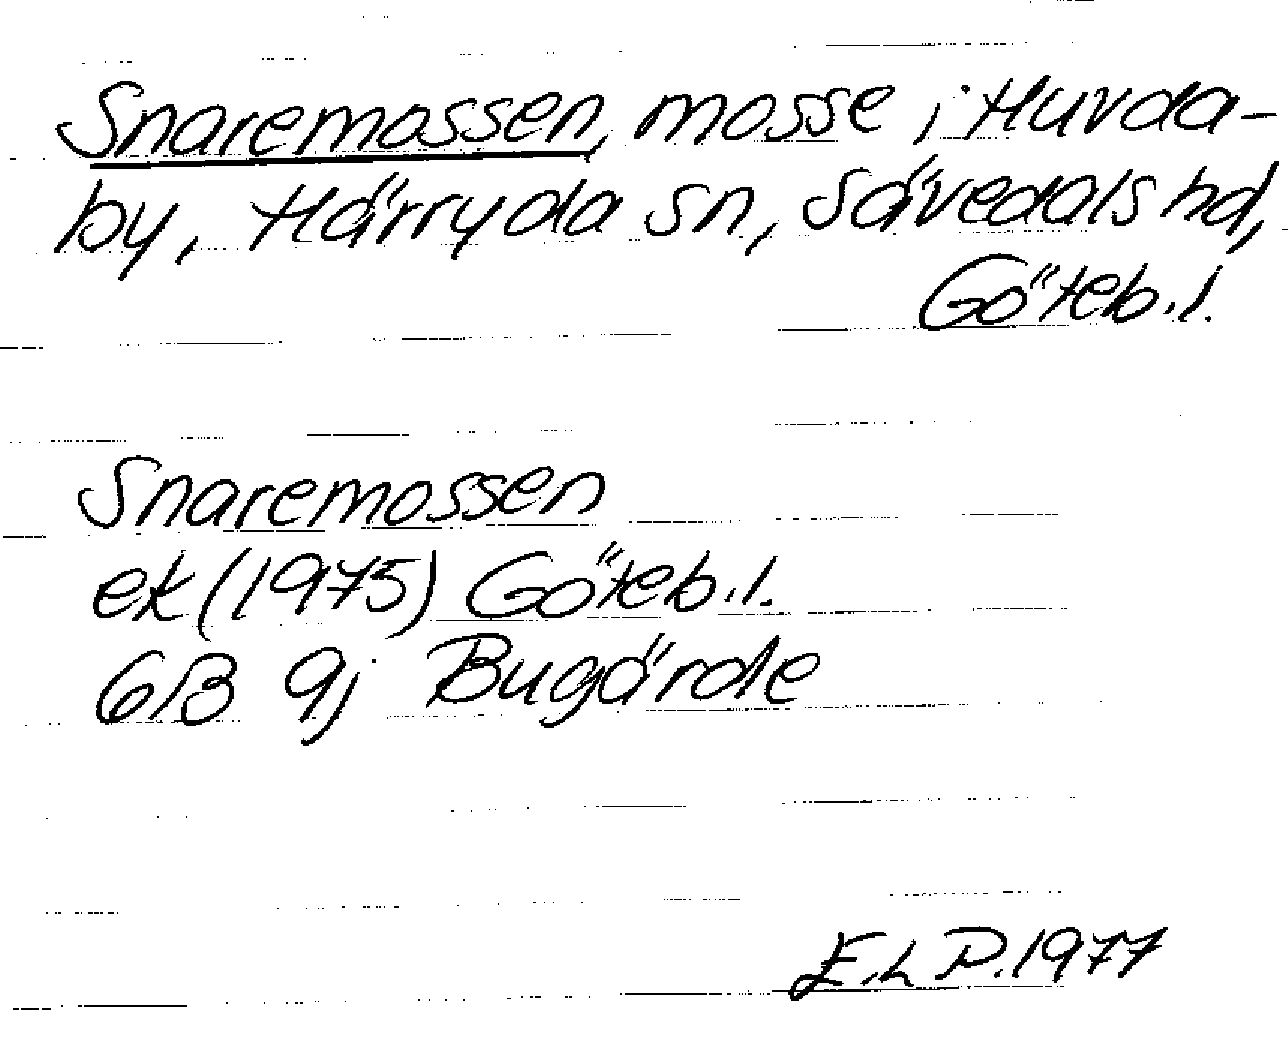 Snaremossen, mosse i Huvda-
by, Härryda sn, Sävedals hd,
Göteb.l.
Snaremossen
ek (1975) Göteb.l.
6B 9j Bugärde
E.L P. 1977